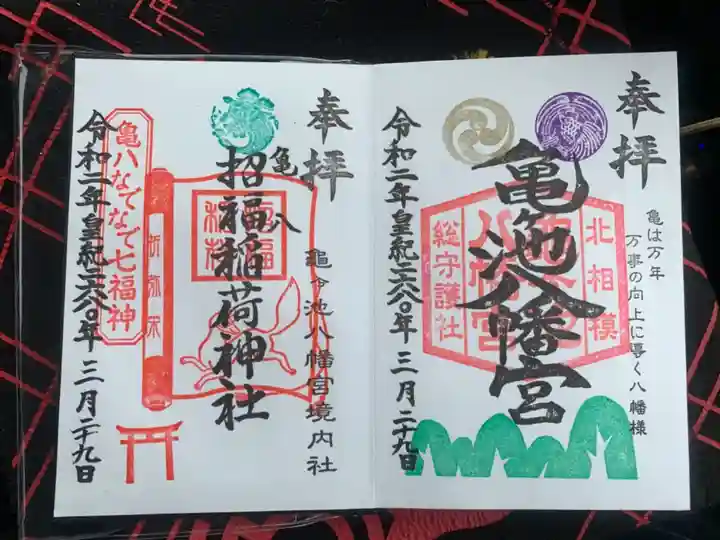 奉拝
亀は万年
万事の向上に導く八幡様
亀ヶ池八幡宮
北相模
総守護社
令和二年皇紀二六八〇年三月二十九日
奉拝
亀ヶ池八幡宮境内社
亀八
招福稲荷神社
亀八なでなで七福神
令和二年皇紀二六八〇年三月二十九日